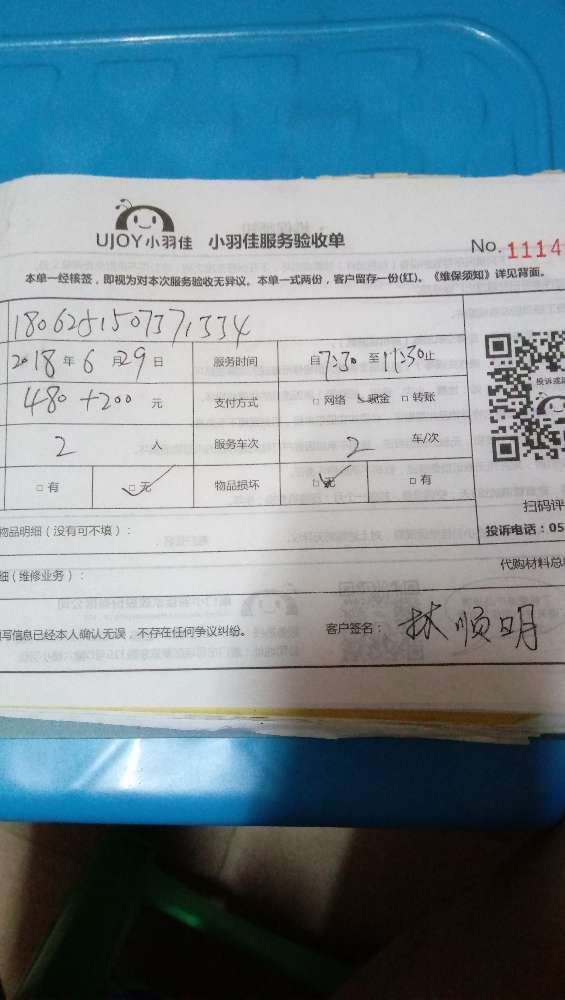 UJOY小羽佳 小羽佳服务验收单
No. 1114
本单一经核签，即视为对本次服务验收无异议。本单一式两份，客户留存一份(红)。《维保须知》详见背面。
180628150737,1334
2018 年 6 月 29 日 服务时间 自 7:30 至 11:30 止
480+200 元 支付方式 □ 网络 现金 □ 转账
2 人 服务车次 2 车/次
□ 有 □ 无 物品损坏 □ 无 □ 有
投诉或
扫码评
物品明细（没有可不填）：
投诉电话：05
细（维修业务）：
代购材料总
写信息已经本人确认无误，不存在任何争议纠纷。 客户签名： 林顺明